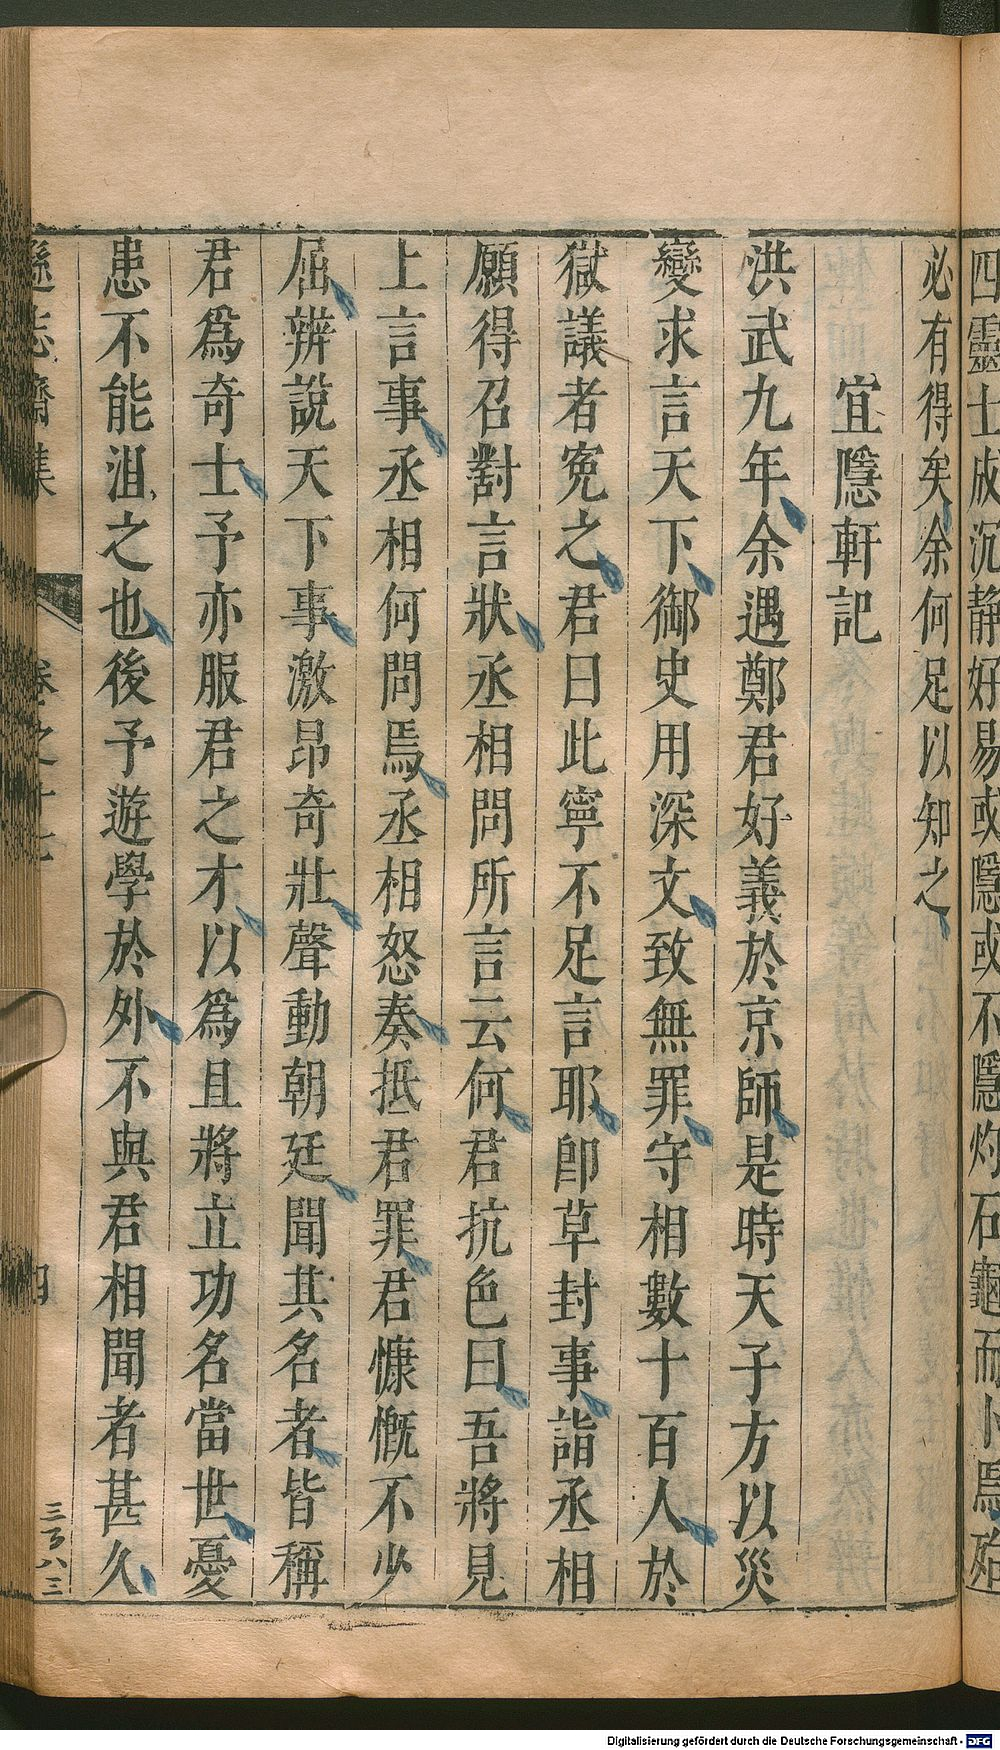 四靈士成沉静好易或隱或不隱灼石龜而卜焉殆
必有得矣余何足以知之
宜隱軒記
洪武九年余遇鄭君好義於京師是時天子方以災
變求言天下御史用深文致無罪守相數十百人於
獄議者寃之君曰此寧不足言耶卽草封事詣丞相
願得召對言狀丞相問所言云何君抗色曰吾將見
上言事丞相何問焉丞相怒奏抵君罪君慷慨不少
屈辨說天下事激昂奇壯聲動朝廷聞其名者皆稱
君爲奇士予亦服君之才以爲且將立功名當世憂
患不能沮之也後予遊學於外不與君相聞者甚久
遜志齋集 卷之十七 四 三百八三
Digitalisierung gefördert durch die Deutsche Forschungsgemeinschaft - DFG